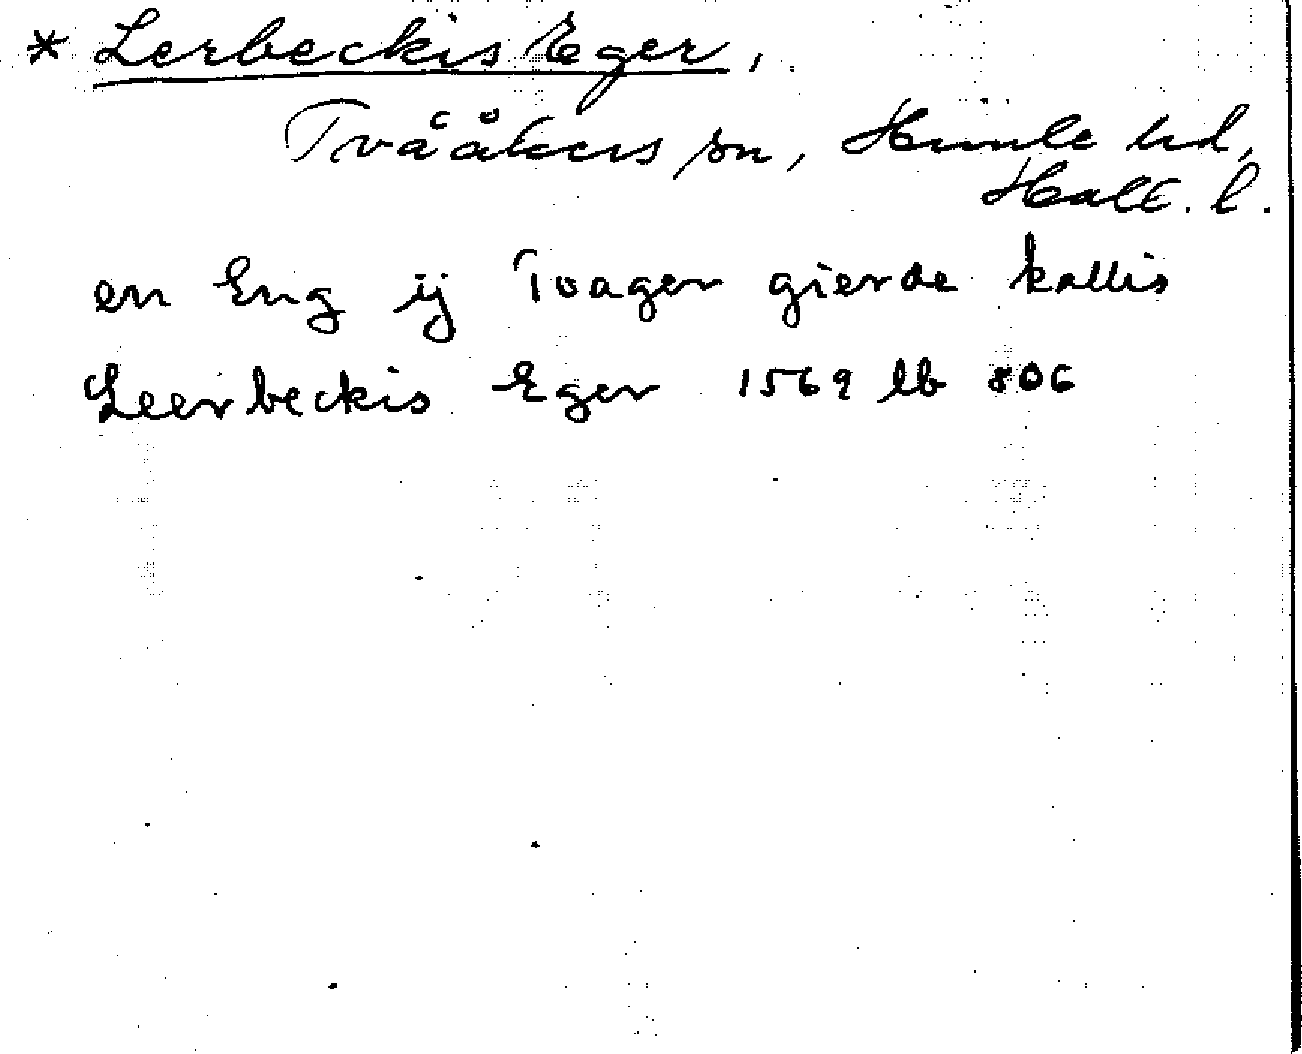 * Lerbeckis Eger,
Tvååkers sn, Himle hd,
Hall. l.
en Eng ij Toager gierde kallis
Leerbeckis Eger 1569 lb 806